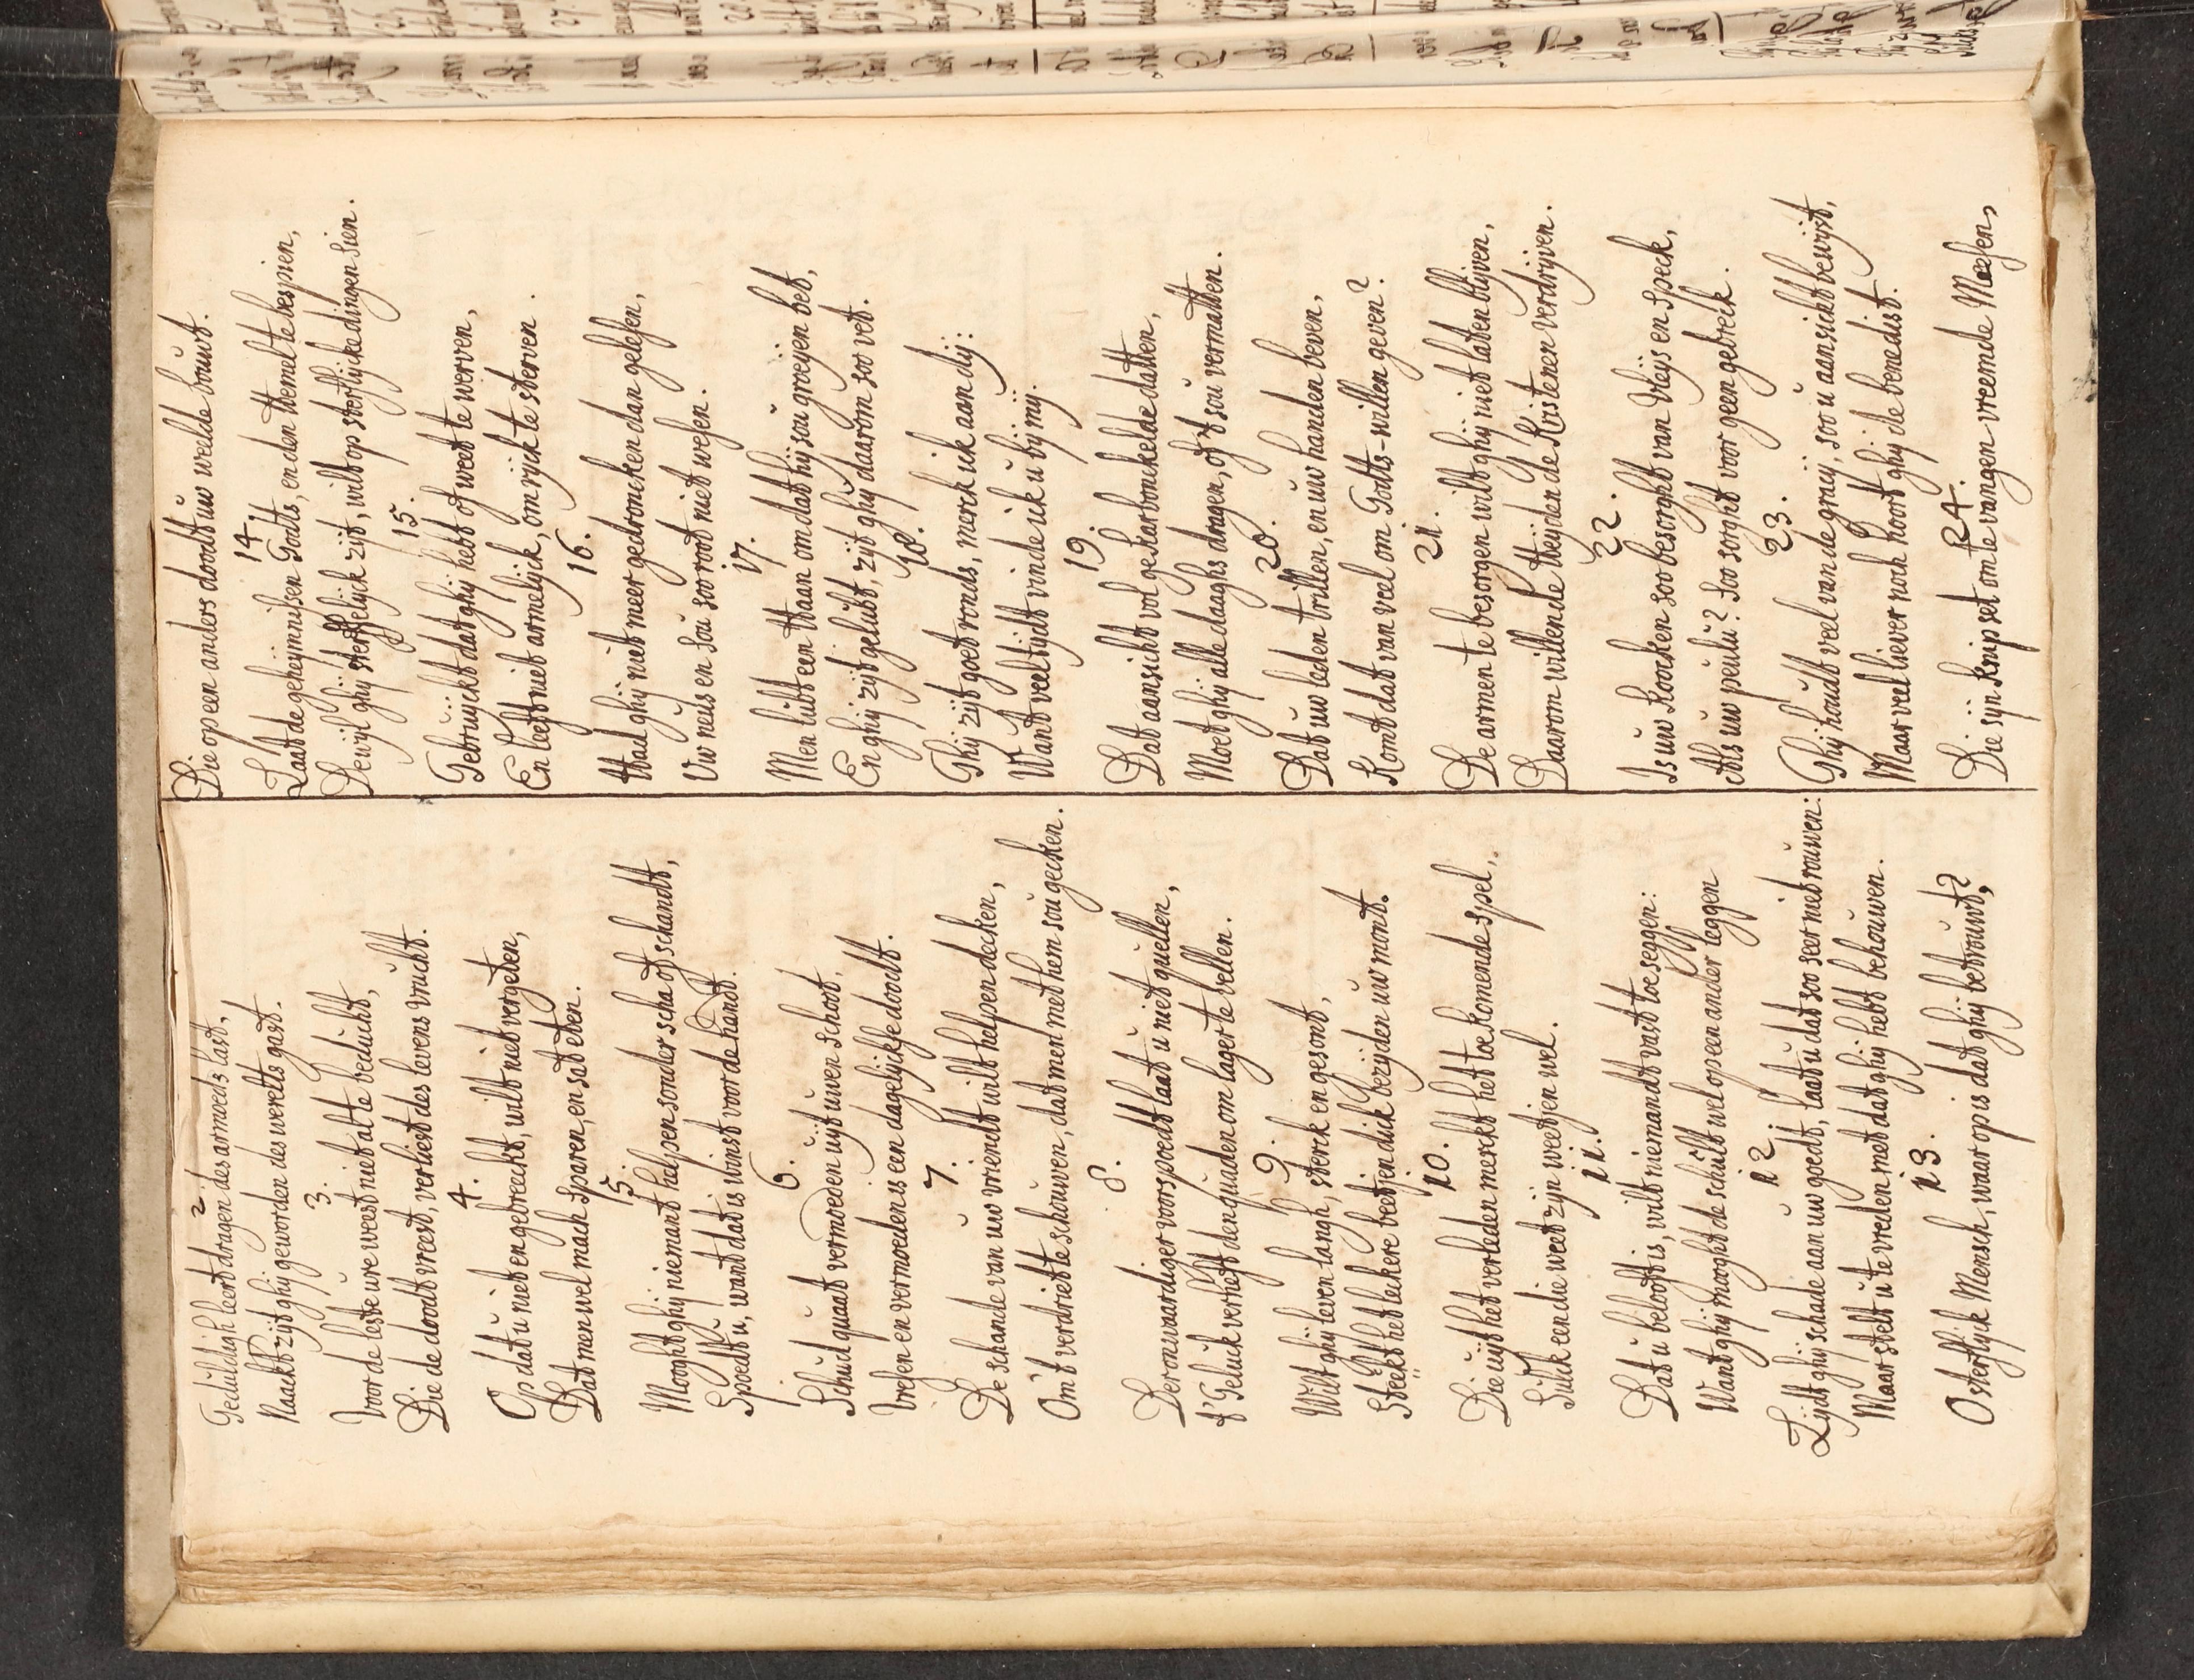 2
Geduldigh leert dragen des armoeds last,
Naackt zijt ghij geworden des werelts gast.
3.
Voor de leste ure weest niet al te beducht,
Die de doodt vreest, verliest des levens vrucht.
4.
Op dat u niet en gebreeckt, wilt niet vergeten,
Dat men wel mach sparen, en sat eten.
5.
Mooght ghij niemant helpen sonder scha of schandt,
Spoedt u, want dat is winst voor de handt.
6.
Schud quaat vermoeden uijt uwen schoot,
Vresen en vermoeden is een dagelijkse doodt.
7.
De schande van uw vriendt wilt helpen decken,
Om't verdriet te schouwen, dat men met hem sou gecken.
8.
Der onwaardiger voorspoedt laat u niet quellen,
t'Geluck verheft den quaden om lager te vellen.
9.
Wilt ghij leven langh, sterck en gesont,
Steekt het lekere beetjen dick bezijden uw mont.
10.
Die uijt het verleden merckt het toekomende spel,
Sulk een die weet zijn weetjen wel.
11.
Dat u belooft is, wilt niemandt vast toeseggen:
Want ghij mooght de schult wel op een ander leggen
12.
Lijdt ghij schade aan uw goedt, laat u dat soo seer niet rouwen:
Maar stelt u te vreden met dat ghij hebt behouwen.
13.
O sterflijk Mensch, waar op is dat ghij betrouwt?
Die op een anders doodt uw welde bouwt.
14.
Laat de geheijmnissen Godts, en den Hemel te bespien,
Dewijl ghij sterffelijck zijt, wilt op sterflijcke dingen sien.
15.
Gebruijckt dat ghij hebt of weet te werven,
En leeft niet armelijck, om rijck te sterven.
16.
Had ghij niet meer gedroncken dan gelesen,
Uw neus en sou soo root niet wesen.
17.
Men lubt een Haan om dat hij sou groeijen bet,
En ghij zijt gelubt, zijt ghij daarom soo vet.
18.
Ghij zijt goet ronds, merck ick aan dij:
Want veeltijdt vinde ick u bij mij.
19.
Dat aansicht vol gekarbonckelde datten,
Moet ghij alle daaghs dragen, of 't sou vermatten.
20.
Dat uw leden trillen, en uw handen beven,
Komt dat van veel om Godts-willen geven?
21.
De armen te besorgen wilt ghij niet laten blijven,
Daarom willende Heijden de Kristenen verdrijven.
22.
Is uw Koocken soo besorght van Vleijs en Speck,
Als uw peulu? Soo sorght voor geen gebreck.
23.
Ghij houdt veel van de gracij, soo u aansicht bewijst,
Maar veel liever noch hoort ghij de benedist.
24.
Die sijn knip set om te vangen vreemde Meesen,